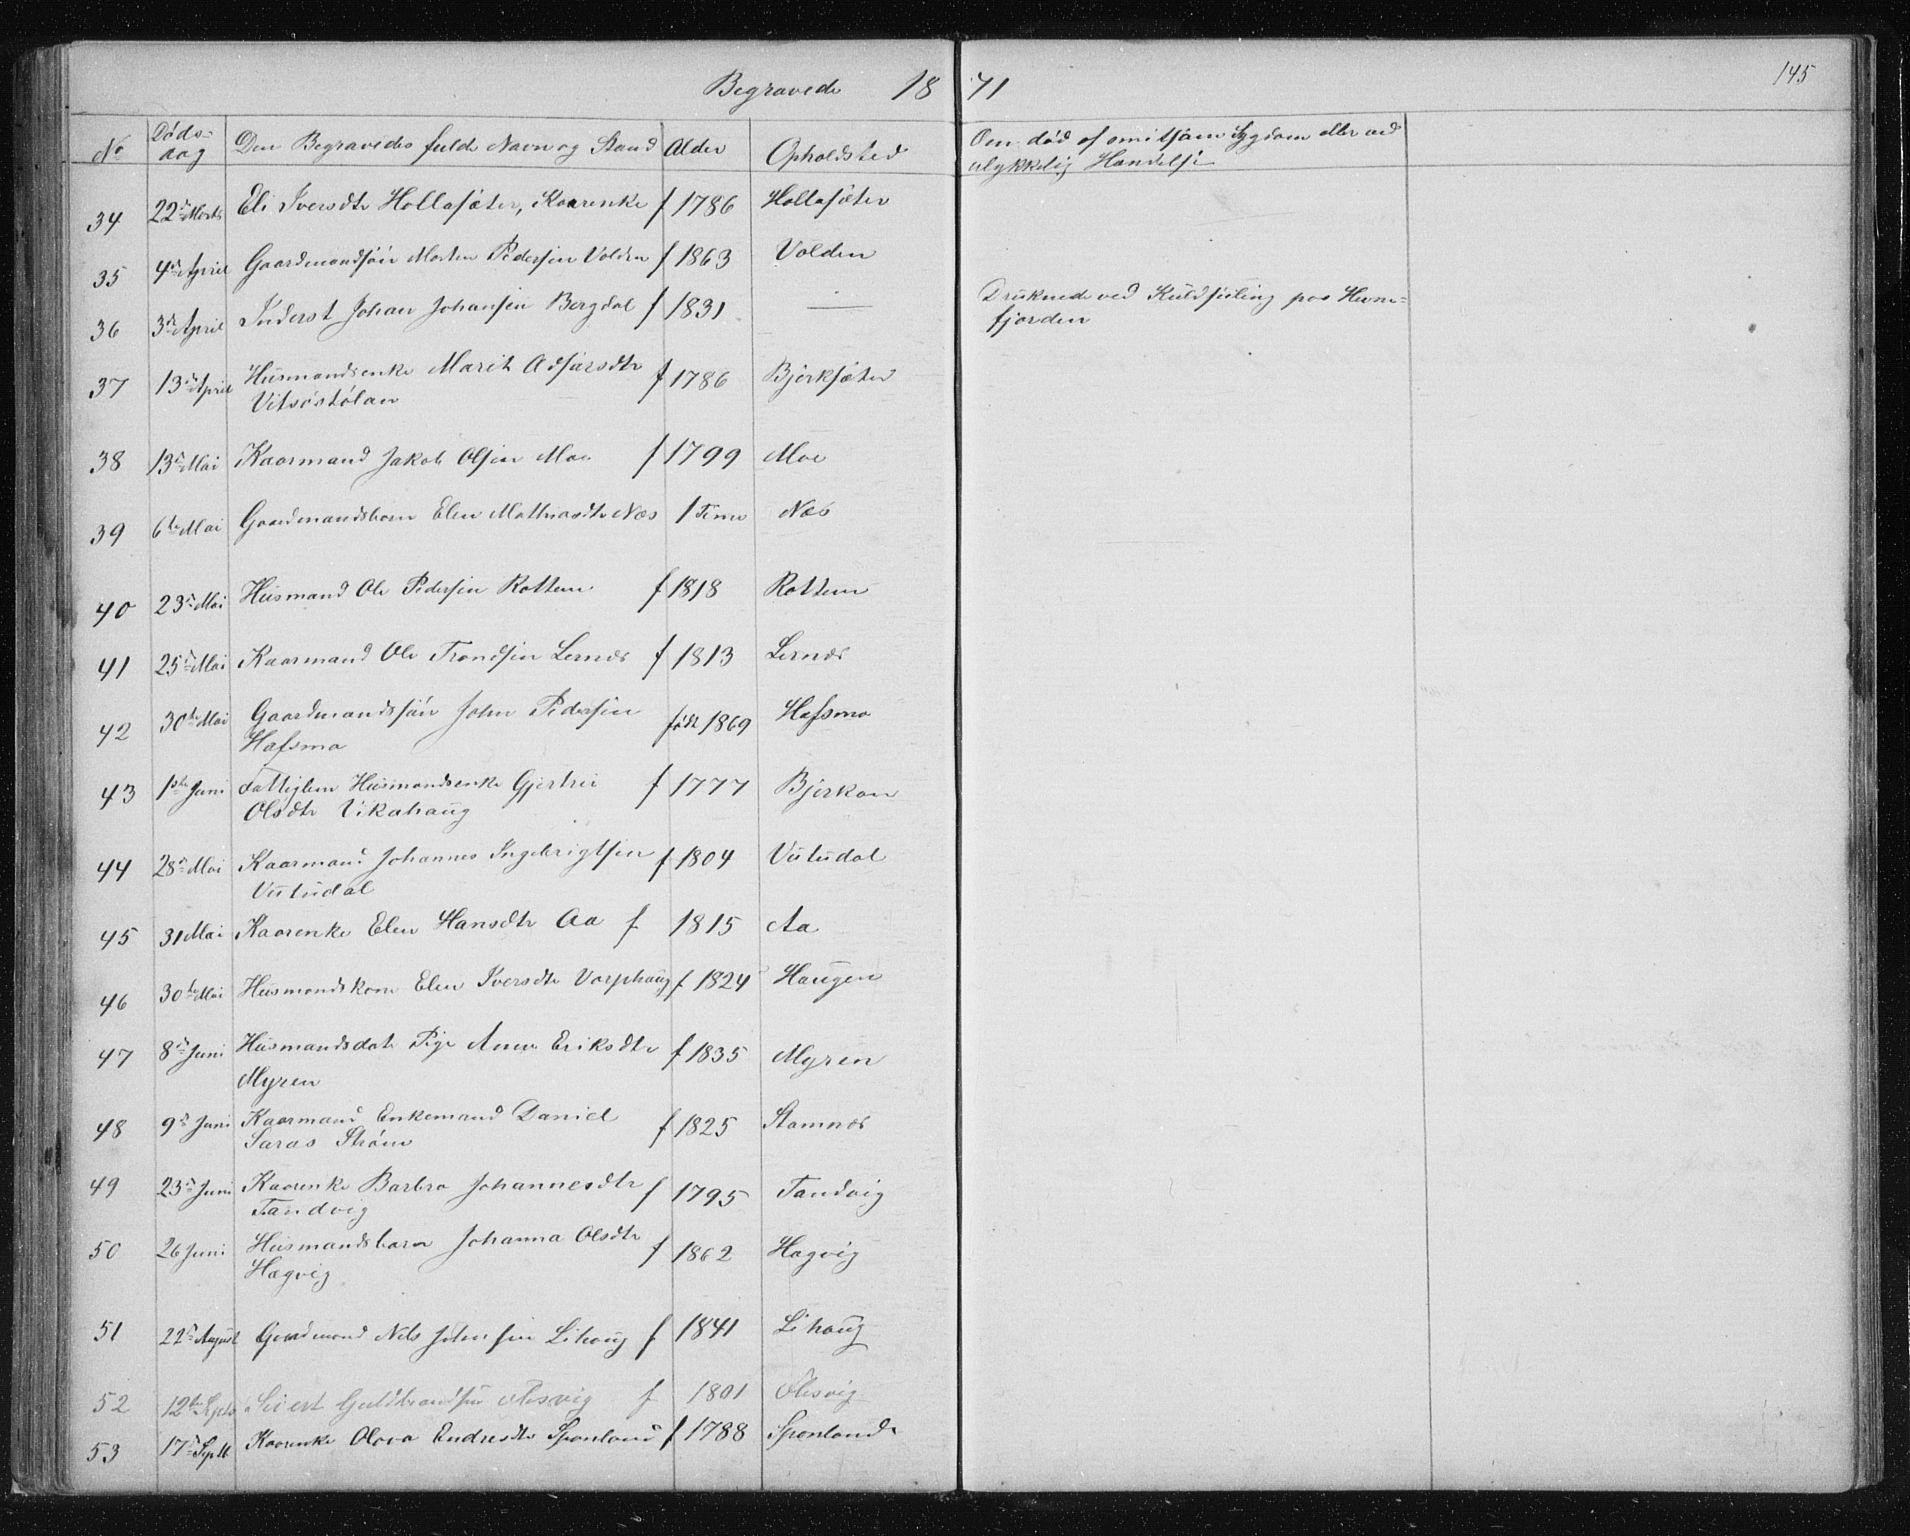 Begravede 1871
145
No Døds-dag Den Begravedes fulde Navn og Stand Alder Opholdsted Om død af smitsom Sygdom eller ved
ulykkelig Hændelse
34 22de Marts Eli Iversdtr Hollasæter, Kaarenke f 1786 Hollasæter
35 4de April Gaardmandssøn Morten Pedersen Volden f 1863 Volden
36 3de April Inderst Johan Johansen Bergdal f 1831 — Druknede ved Kuldseiling paa Hevne-
fjorden
37 13de April Husmandsenke Marit Adsersdtr f 1786 Bjerksæter
Vitsøstølan
38 13de Mai Kaarmand Jakob Olsen Moe f 1799 Moe
39 6te Mai Gaardmandsbarn Elen Mathiasdtr Næs 1 Time Næs
40 23de Mai Husmand Ole Pedersen Rottem f 1818 Rottem
41 25de Mai Kaarmand Ole Trondsen Lernæs f 1813 Lernæs
42 30te Mai Gaardmandssøn John Pedersen født 1869 Hafsmo
Hafsmo
43 1ste Juni Fattiglem Husmandsenke Gjertrui f 1777 Bjerkan
Olsdtr Vikahaug
44 28de Mai Kaarmand Johannes Ingebrigtsen f 1804 Vutudal
Vutudal
45 31 Mai Kaarenke Elen Hansdtr Aa f 1815 Aa
46 30te Mai Husmandskone Elen Iversdtr Vorphaug f 1824 Haugen
47 8de Juni Husmandsdatr Pige Anne Eriksdtr f 1835 Myren
Myren
48 9de Juni Kaarmand Enkemand Daniel f 1825 Stamnæs
Saras Strøm
49 23de Juni Kaarenke Barbro Johannesdtr f 1795 Tandvig
Tandvig
50 26 Juni Husmandsbarn Johanna Olsdtr f 1862 Hagvig
Hagvig
51 22de August Gaardmand Nils Johnsen Lihaug f 1841 Lihaug
52 12te Septb Sivert Guldbrandsen Olesvig f 1801 Olesvig
53 17de Septb Kaarenke Olava Endresdtr Sponland f 1788 Sponland